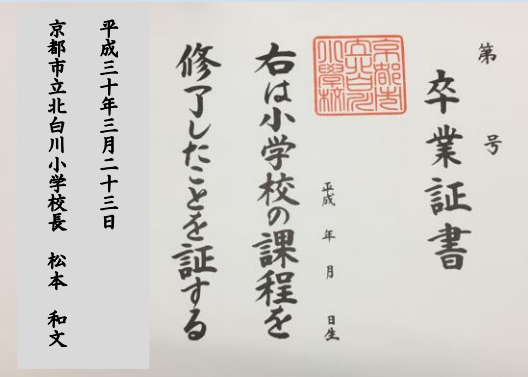 第　号
卒業証書
平成　年　月　日生
京都市立北白川小学校
右は小学校の課程を
修了したことを証する
平成三十年三月二十三日
京都市立北白川小学校長　松本　和文